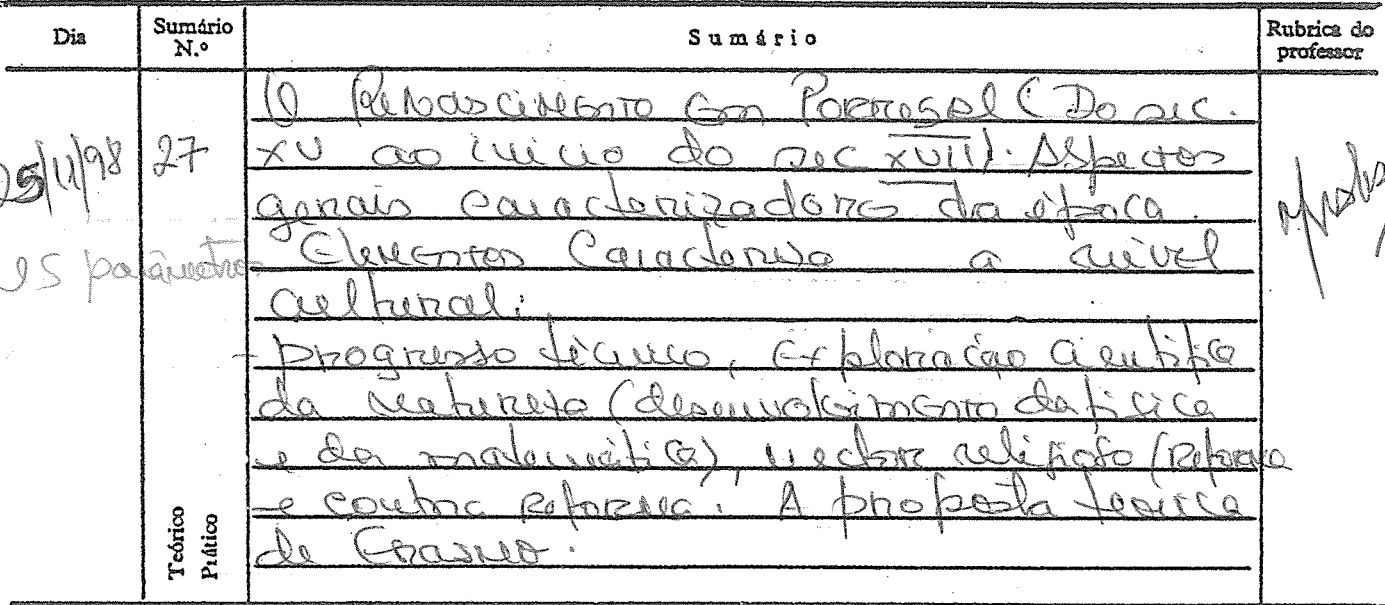 Dia
Sumário N.º
Sumário
Rubrica do professor
25/11/98
27
O Renascimento em Portugal (Do séc.
XV ao início do séc XVIII). Aspectos
gerais caracterizadores da época.
Os parâmetros
Elementos a nível
cultural:
- progresso técnico, Exploração Científica
da natureza (desenvolvimento da física
e da matemática), vector religioso (Reforma
e contra Reforma. A proposta teórica
de Erasmo.
Teórico
Prático